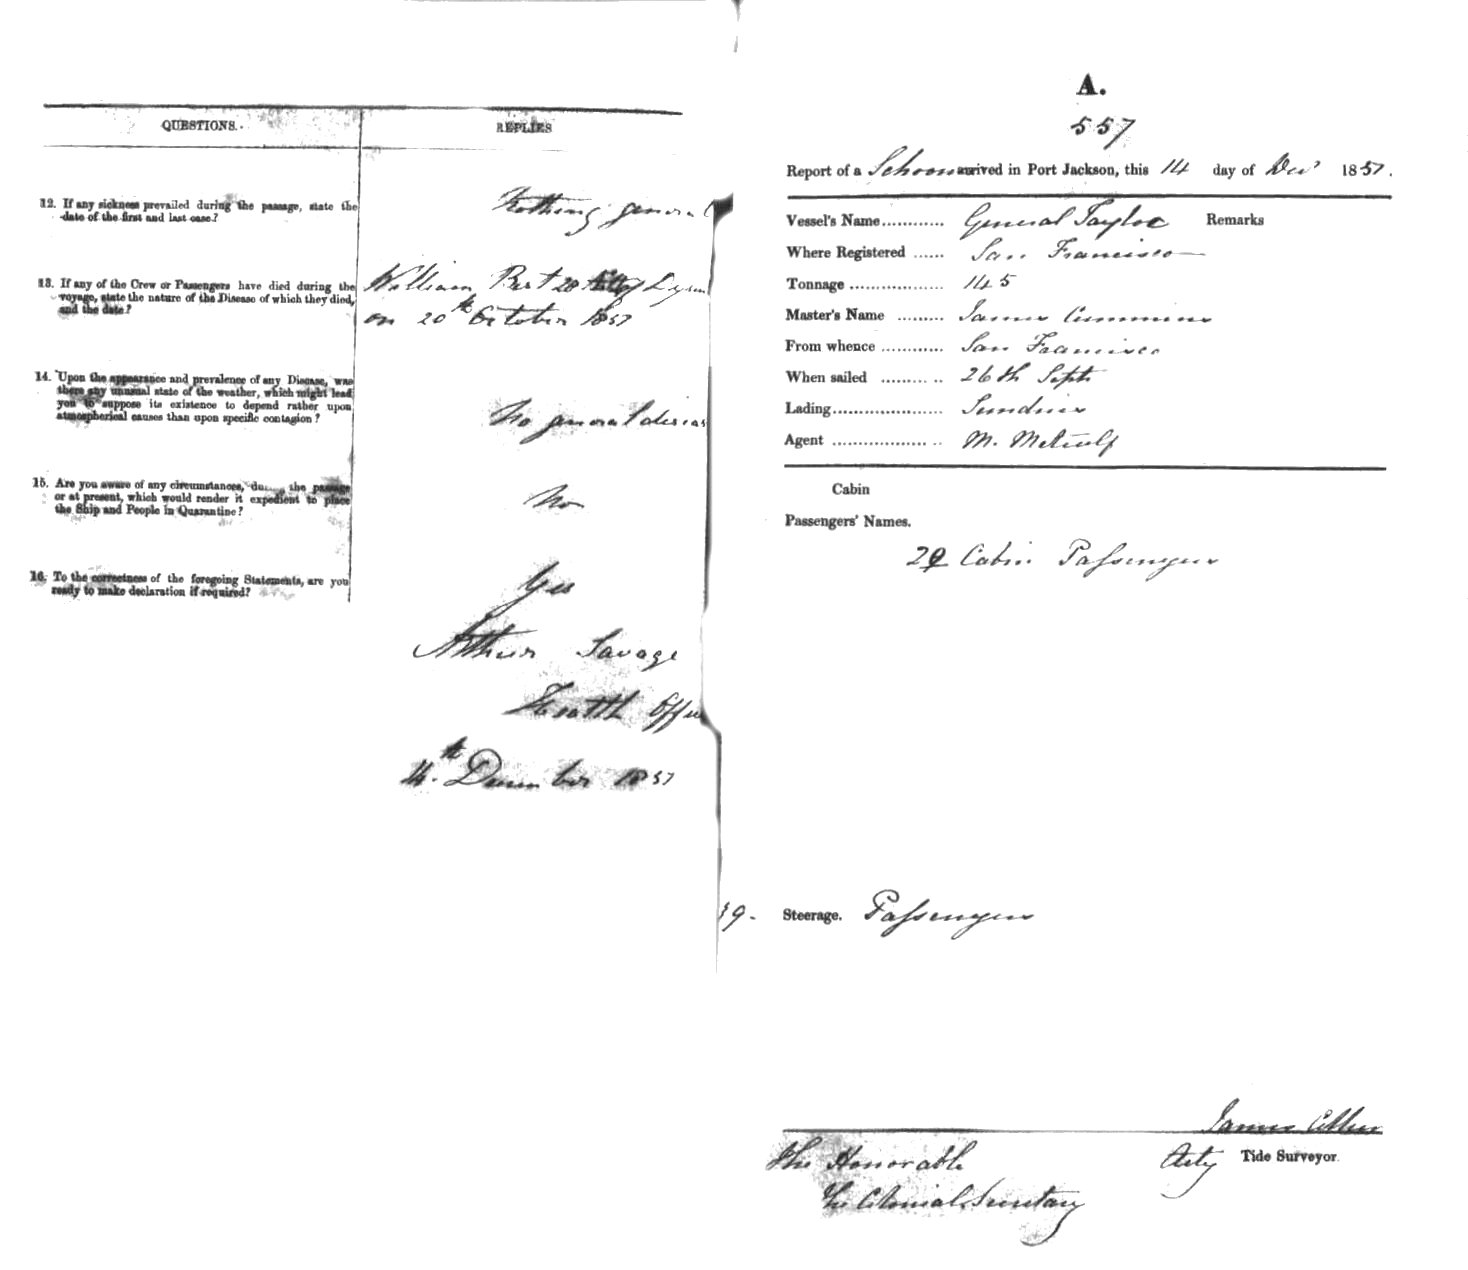 QUESTIONS.
REPLIES
12. If any sickness prevailed during the passage, state the
date of the first and last case?
Nothing general
13. If any of the Crew or Passengers have died during the
voyage, state the nature of the Disease of which they died,
and the date?
William
on 20th October 1851
14. Upon the appearance and prevalence of any Disease, was
there any unusual state of the weather, which might lead
you to suppose its existence to depend rather upon
atmospherical causes than upon specific contagion?
No general diseas
15. Are you aware of any circumstances, du the passage
or at present, which would render it expedient to place
the Ship and People in Quarantine?
No
16. To the correctness of the foregoing Statements, are you
ready to make declaration if required?
Yes
Arthur Savage
Health Offi
14th December 1851
A.
557
Report of a Schooner arrived in Port Jackson, this 14 day of Decr 1851.
Vessel's Name............ General Taylor Remarks
Where Registered ...... San Francisco
Tonnage .................. 145
Master's Name ......... James Cummins
From whence ............ San Francisco
When sailed ........... 26th Septr
Lading..................... Sundries
Agent ..................... M. Metcalf
Cabin
Passengers' Names.
29 Cabin Passengers
39. Steerage. Passengers
James
Actg Tide Surveyor.
The Honorable
The Colonial Secretary